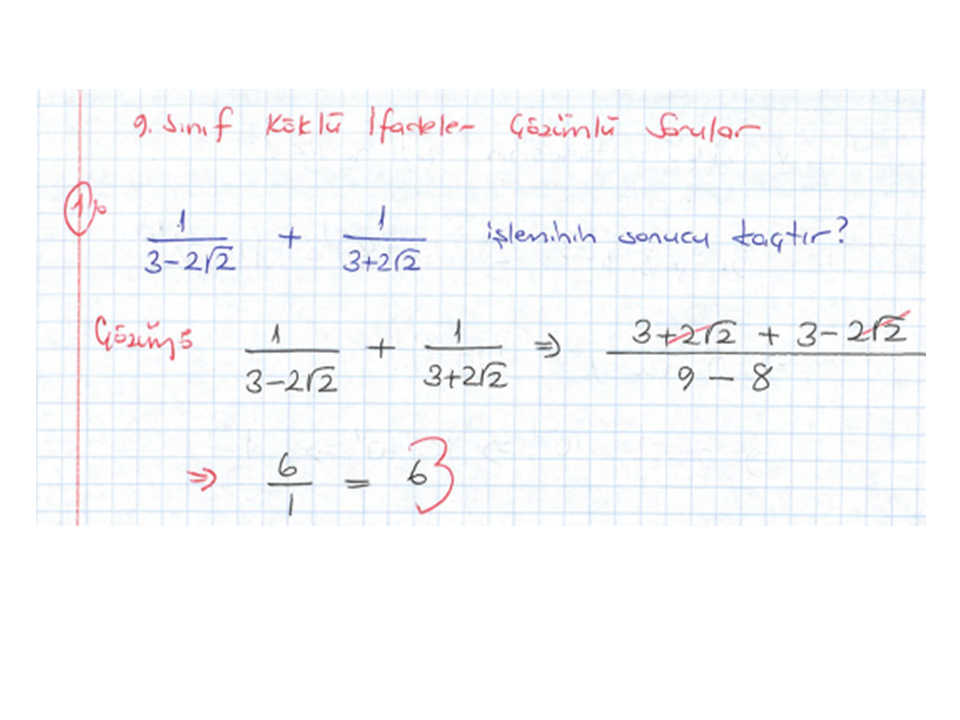 9. Sınıf Köklü İfadeler Çözümlü Sorular
1)
1/(3-2√2) + 1/(3+2√2) işleminin sonucu kaçtır?
Çözüm: 1/(3-2√2) + 1/(3+2√2) ⇒ (3+2√2 + 3-2√2)/(9-8)
⇒ 6/1 = 6